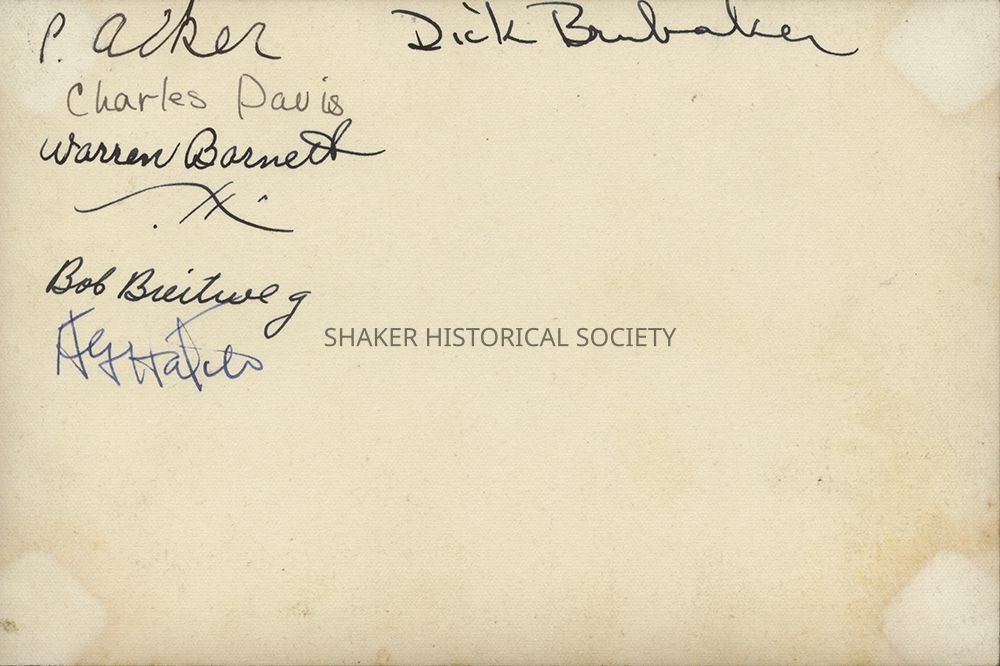 P. Acker Dick Brubaker
Charles Davis
Warren Barnett
Bob Breitweg
SHAKER HISTORICAL SOCIETY